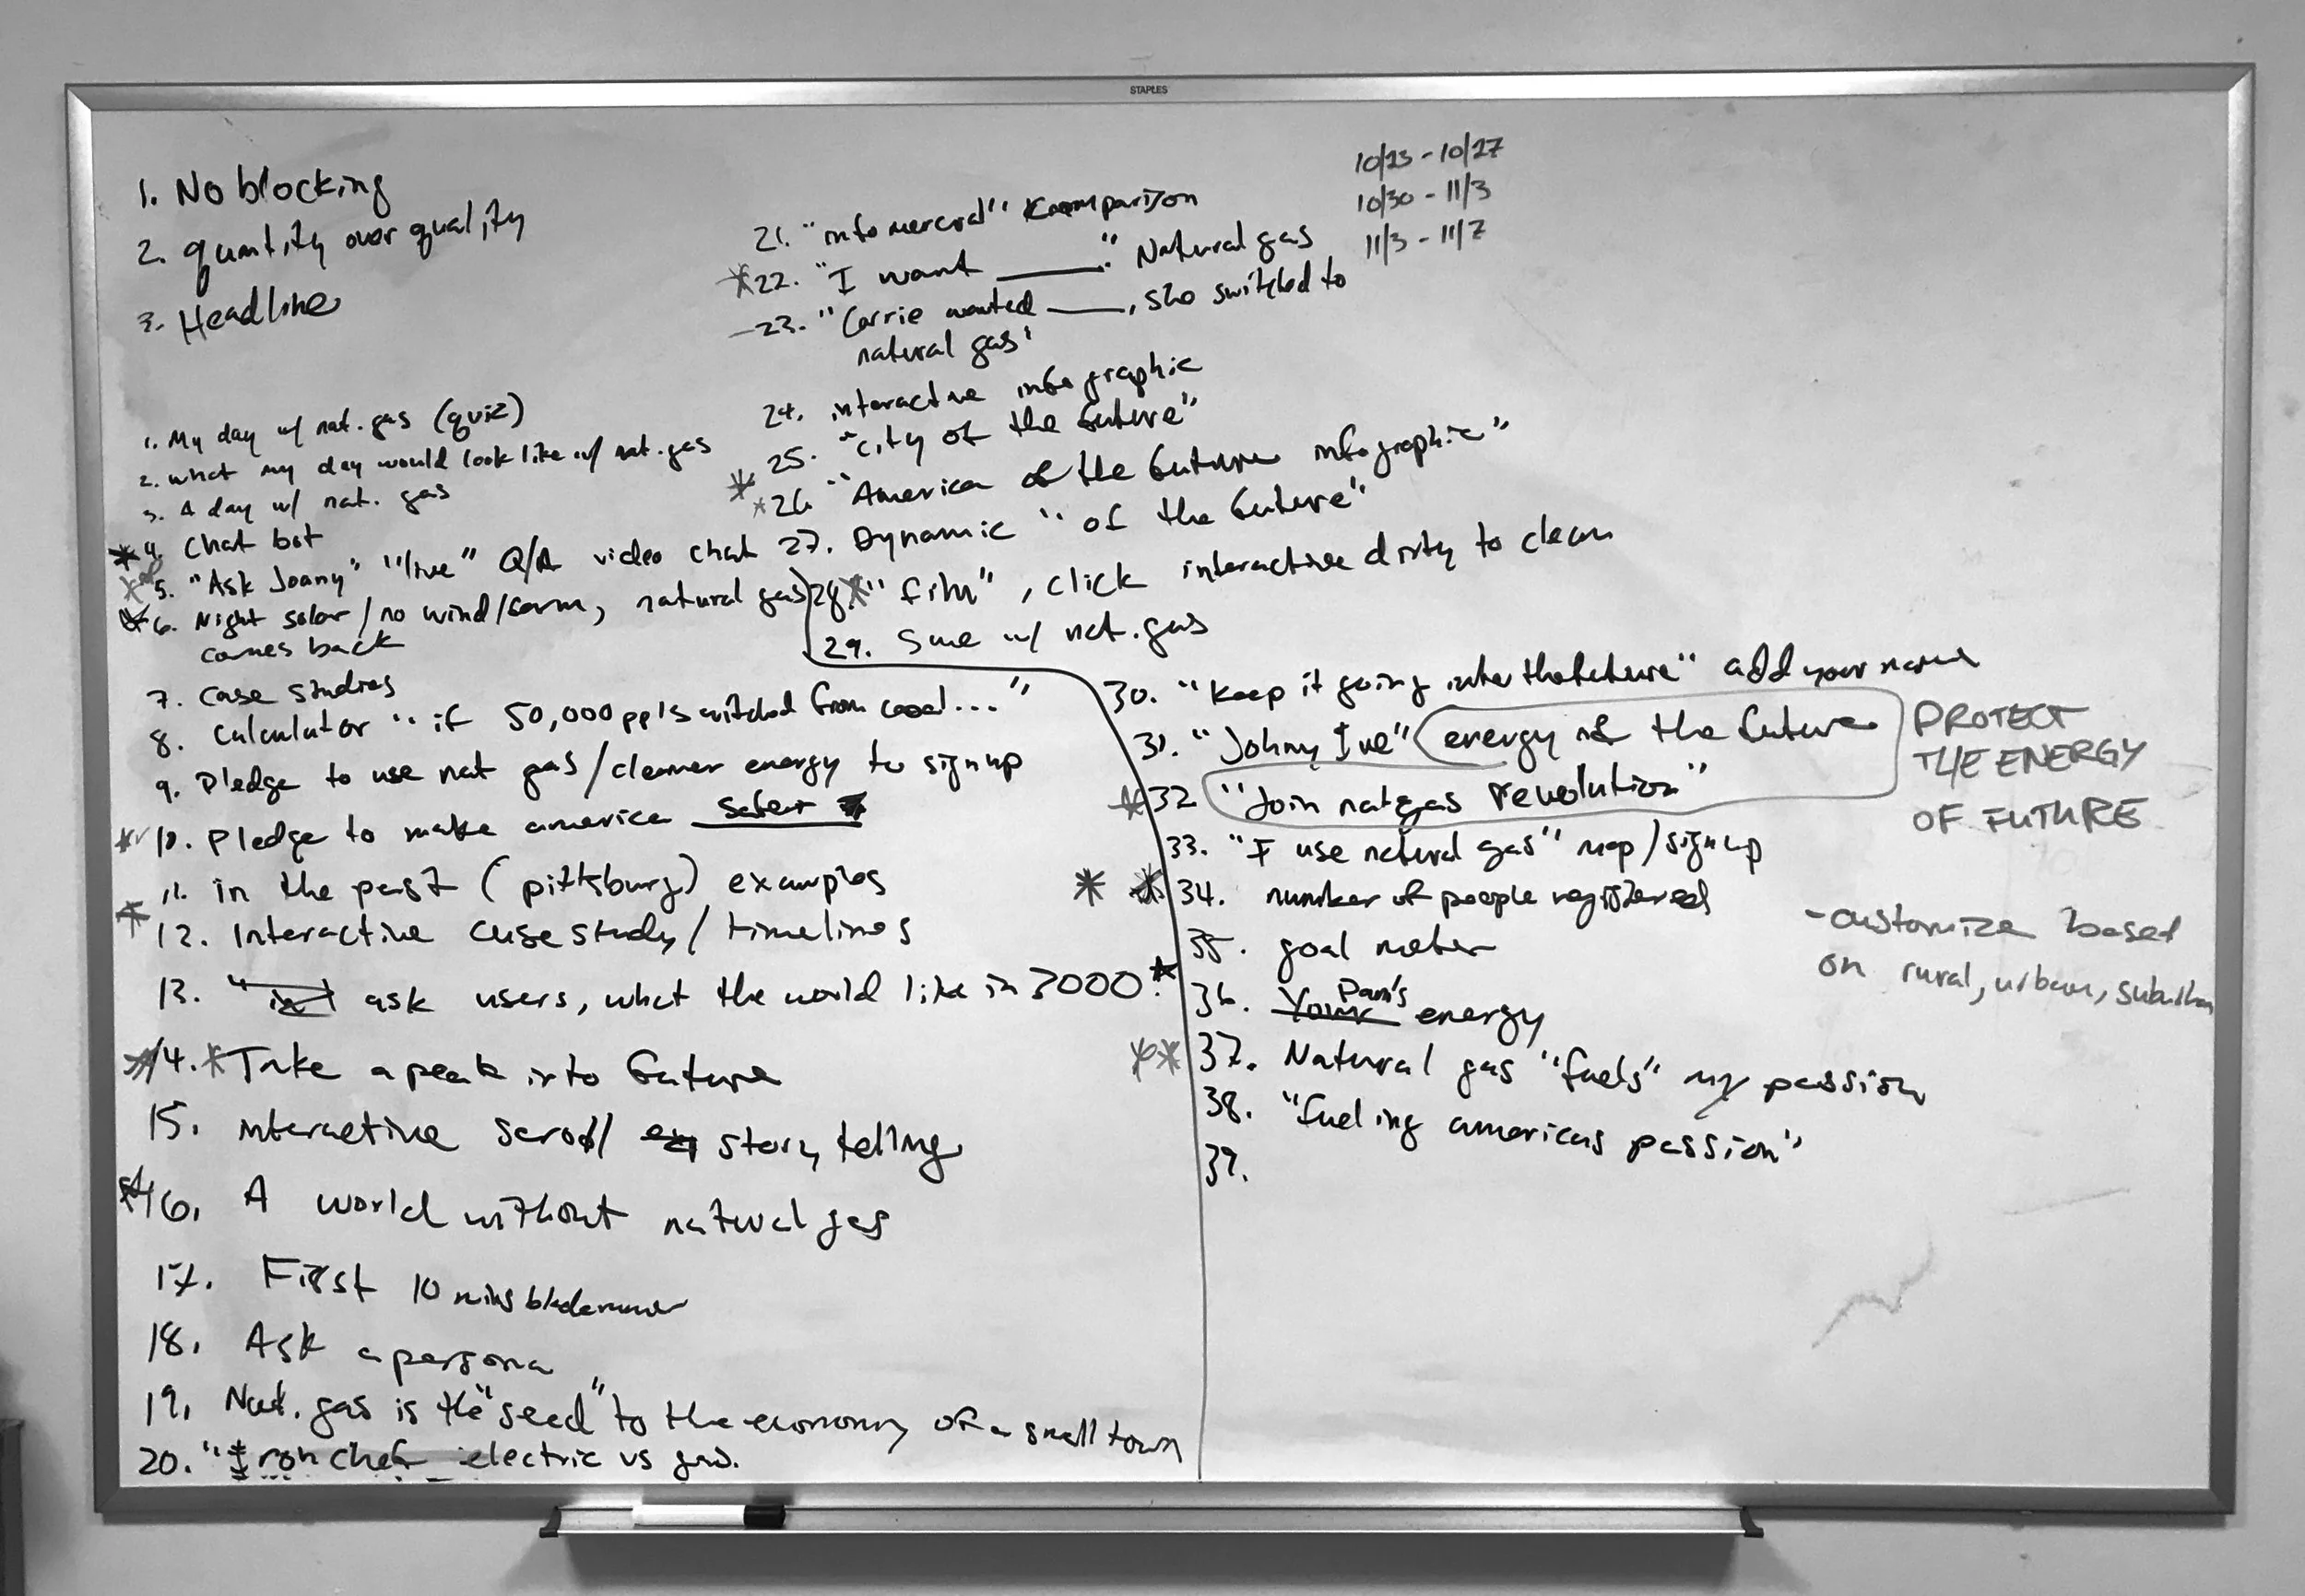 STAPLES
1. No blocking
2. quantity over quality
3. Headline
1. My day w/ nat. gas (quiz)
2. what my day would look like w/ nat. gas
3. A day w/ nat. gas
* 4. Chat bot
* 5. "Ask Joany" "live" Q/A video chat
* 6. Night solar / no wind/farm, natural gas
comes back
7. case studies
8. Calculator "if 50,000 ppl switched from coal..."
9. Pledge to use nat gas/cleaner energy to sign up
* 10. Pledge to make america safer
11. in the past (pittsburg) examples
* 12. Interactive case study/timelines
13. " ask users, what the world like in 3000? *
* 14. * Take a peak into future
15. interactive scroll story telling
* 16. A world without natural gas
17. First 10 mins bladerunner
18. Ask a persona
19. Nat. gas is the "seed" to the economy of a small town
20. "Iron chef electric vs gas.
21. "infomercial" Komparison
* 22. "I want ____." Natural gas
23. "Carrie wanted ____, she switched to
natural gas"
24. interactive infographic
* 25. "city of the future"
* 26 "America of the future infographic"
27. Dynamic "of the future"
28 * "film", click interactive dirty to clean
29. Same w/ nat. gas
30. "Keep it going into the future" add your name
31. "Johny Ive" energy of the future
* 32 "Join natgas revolution"
33. "I use natural gas" map/sign up
* * 34. number of people registered
35. goal meter
36. Your Dan's energy
* * 37. Natural gas "fuels" my passion
38. "fueling americas passion"
39.
10/23 - 10/27
10/30 - 11/3
11/3 - 11/7
PROTECT
THE ENERGY
OF FUTURE
- customize based
on rural, urban, suburban